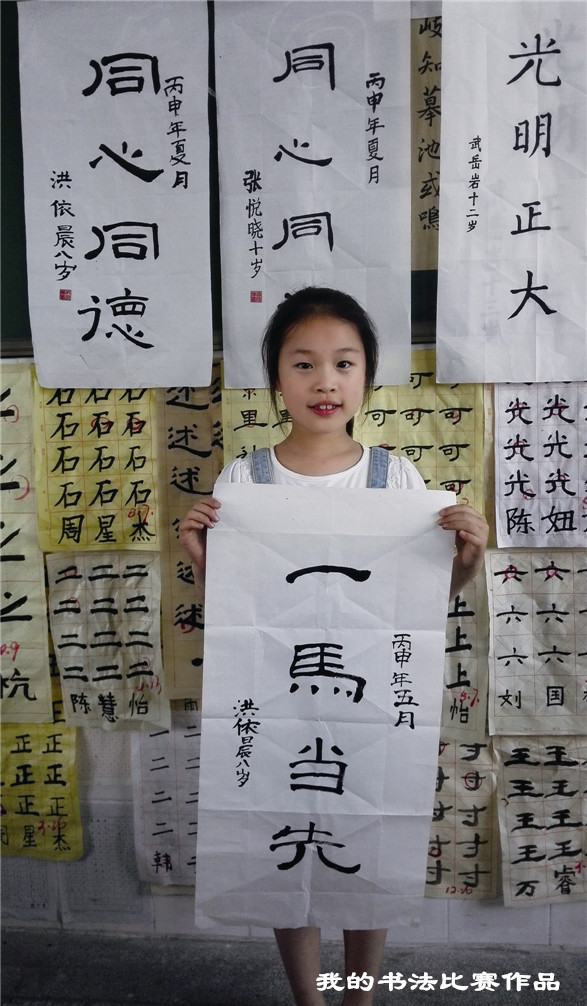 丙申年夏月
同心同德
洪依晨八岁
丙申年夏月
同心同
张悦晓十岁
岐知摹池或鳴
光明正大
武岳岩十二岁
石石石
石石石
石石石
石石石
周星杰
述述
里
可可可
可可可
可可可
光光
光光
光光
陈妞
二二二
二二二
二二二
二二二
陈慧怡
杭
上
上
上
怡
六六六
六六六
六六六
刘国
正正正
正正正
正正正
周星杰
一
二
二
二
韩
寸寸
寸寸
寸寸
寸寸
王王王
王王王
王王王
王王王
万睿
丙申年五月
一马当先
洪依晨八岁
我的书法比赛作品